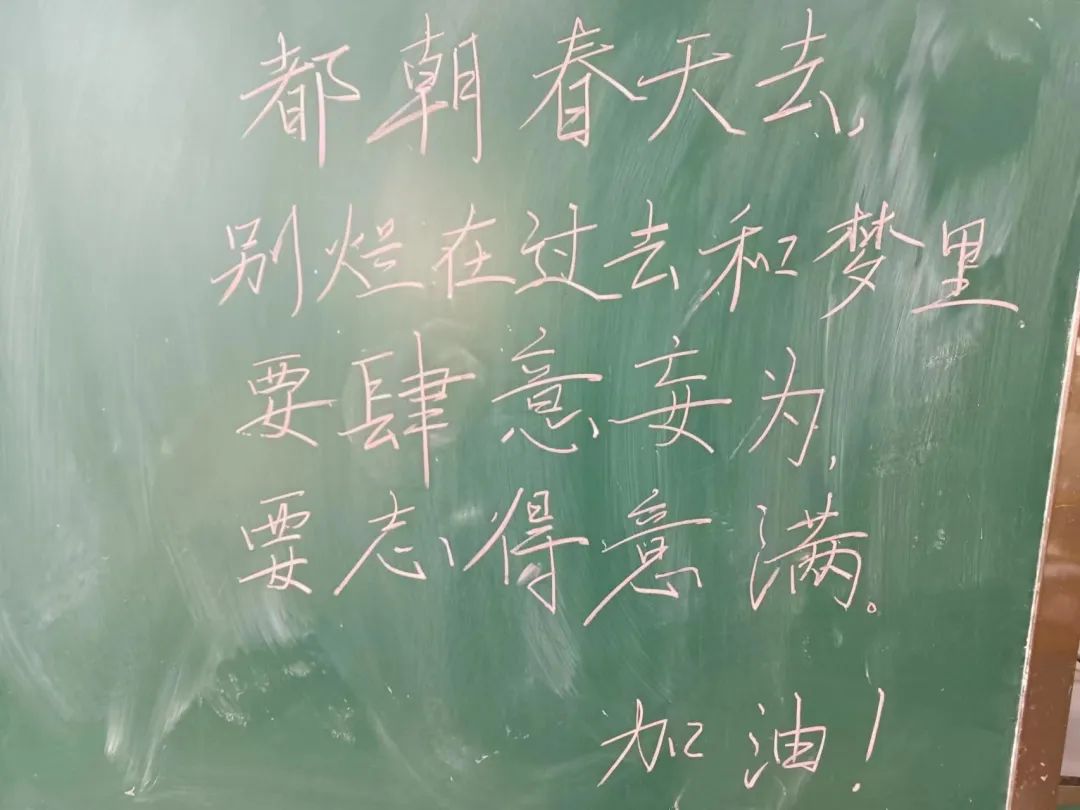 都朝春天去,
别烂在过去和梦里.
要肆意妄为,
要志得意满。
加油!